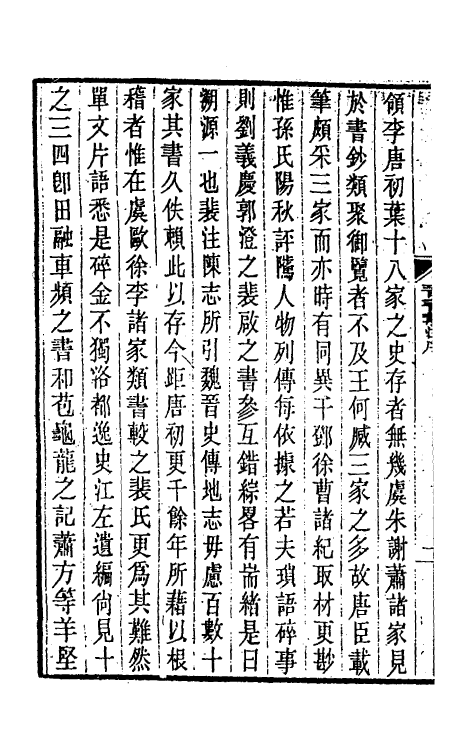 領李唐初葉十八家之史存者無幾虞朱謝蕭諸家見
於書鈔類聚御覽者不及王何臧三家之多故唐臣載
筆頗采三家而亦時有同異干鄧徐曹諸紀取材更尠
惟孫氏陽秋評隲人物列傳每依據之若夫瑣語碎事
則劉義慶郭澄之裴啟之書參互錯綜畧有耑緒是曰
溯源一也裴注陳志所引魏晉史傳地志毋慮百數十
家其書久佚賴此以存今距唐初更千餘年所藉以根
稽者惟在虞歐徐李諸家類書較之裴氏更爲其難然
單文片語悉是碎金不獨洛都逸史江左遺編尙見十
之三四卽田融車頻之書和苞龜龍之記蕭方等羊坚
二